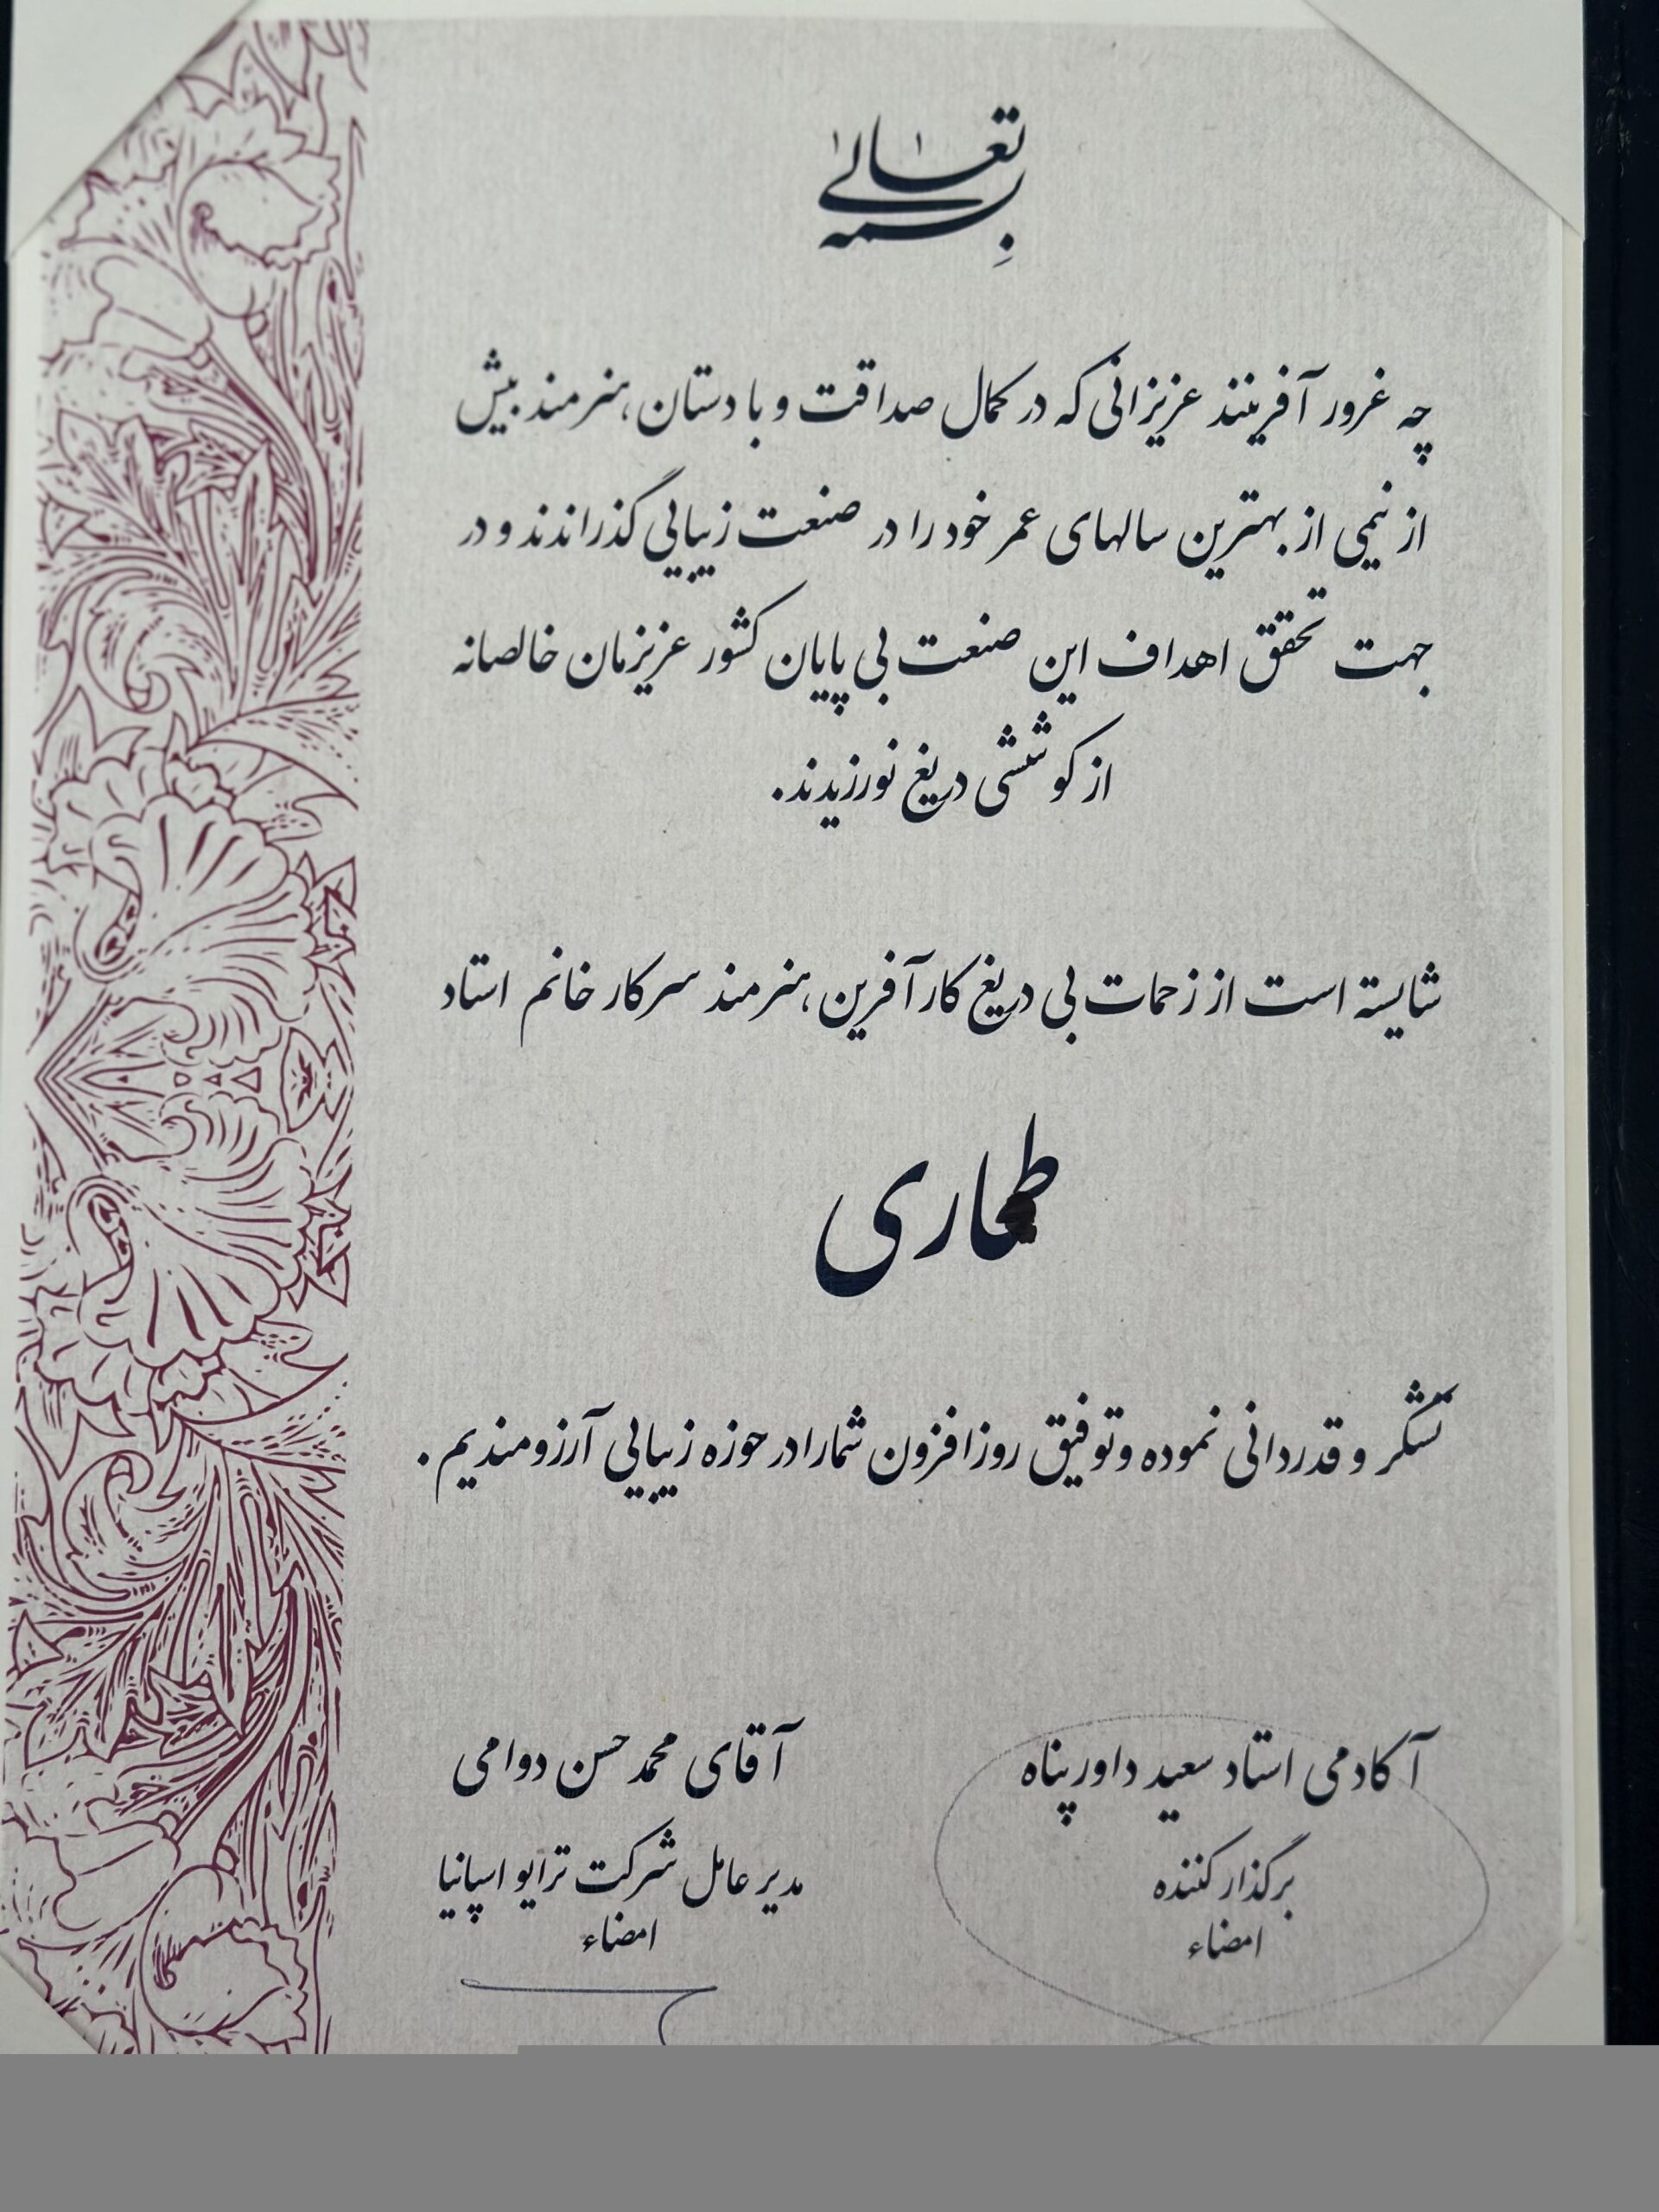 بسمه تعالی
چه غرور آفرینند عزیزانی که در کمال صداقت و با دستان هنرمند بیش
از نیمی از بهترین سالهای عمر خود را در صنعت زیبایی گذراندند و در
جهت تحقق اهداف این صنعت بی پایان کشور عزیزمان خالصانه
از کوششی دریغ نورزیدند.
شایسته است از زحمات بی دریغ کارآفرین، هنرمند سرکار خانم استاد
تشکر و قدردانی نموده و توفیق روزافزون شما را در حوزه زیبایی آرزومندیم.
آکادمی استاد سعید داورپناه
برگذار کننده
امضاء
آقای محمد حسن دوامی
مدیر عامل شرکت ترایو اسپانیا
امضاء